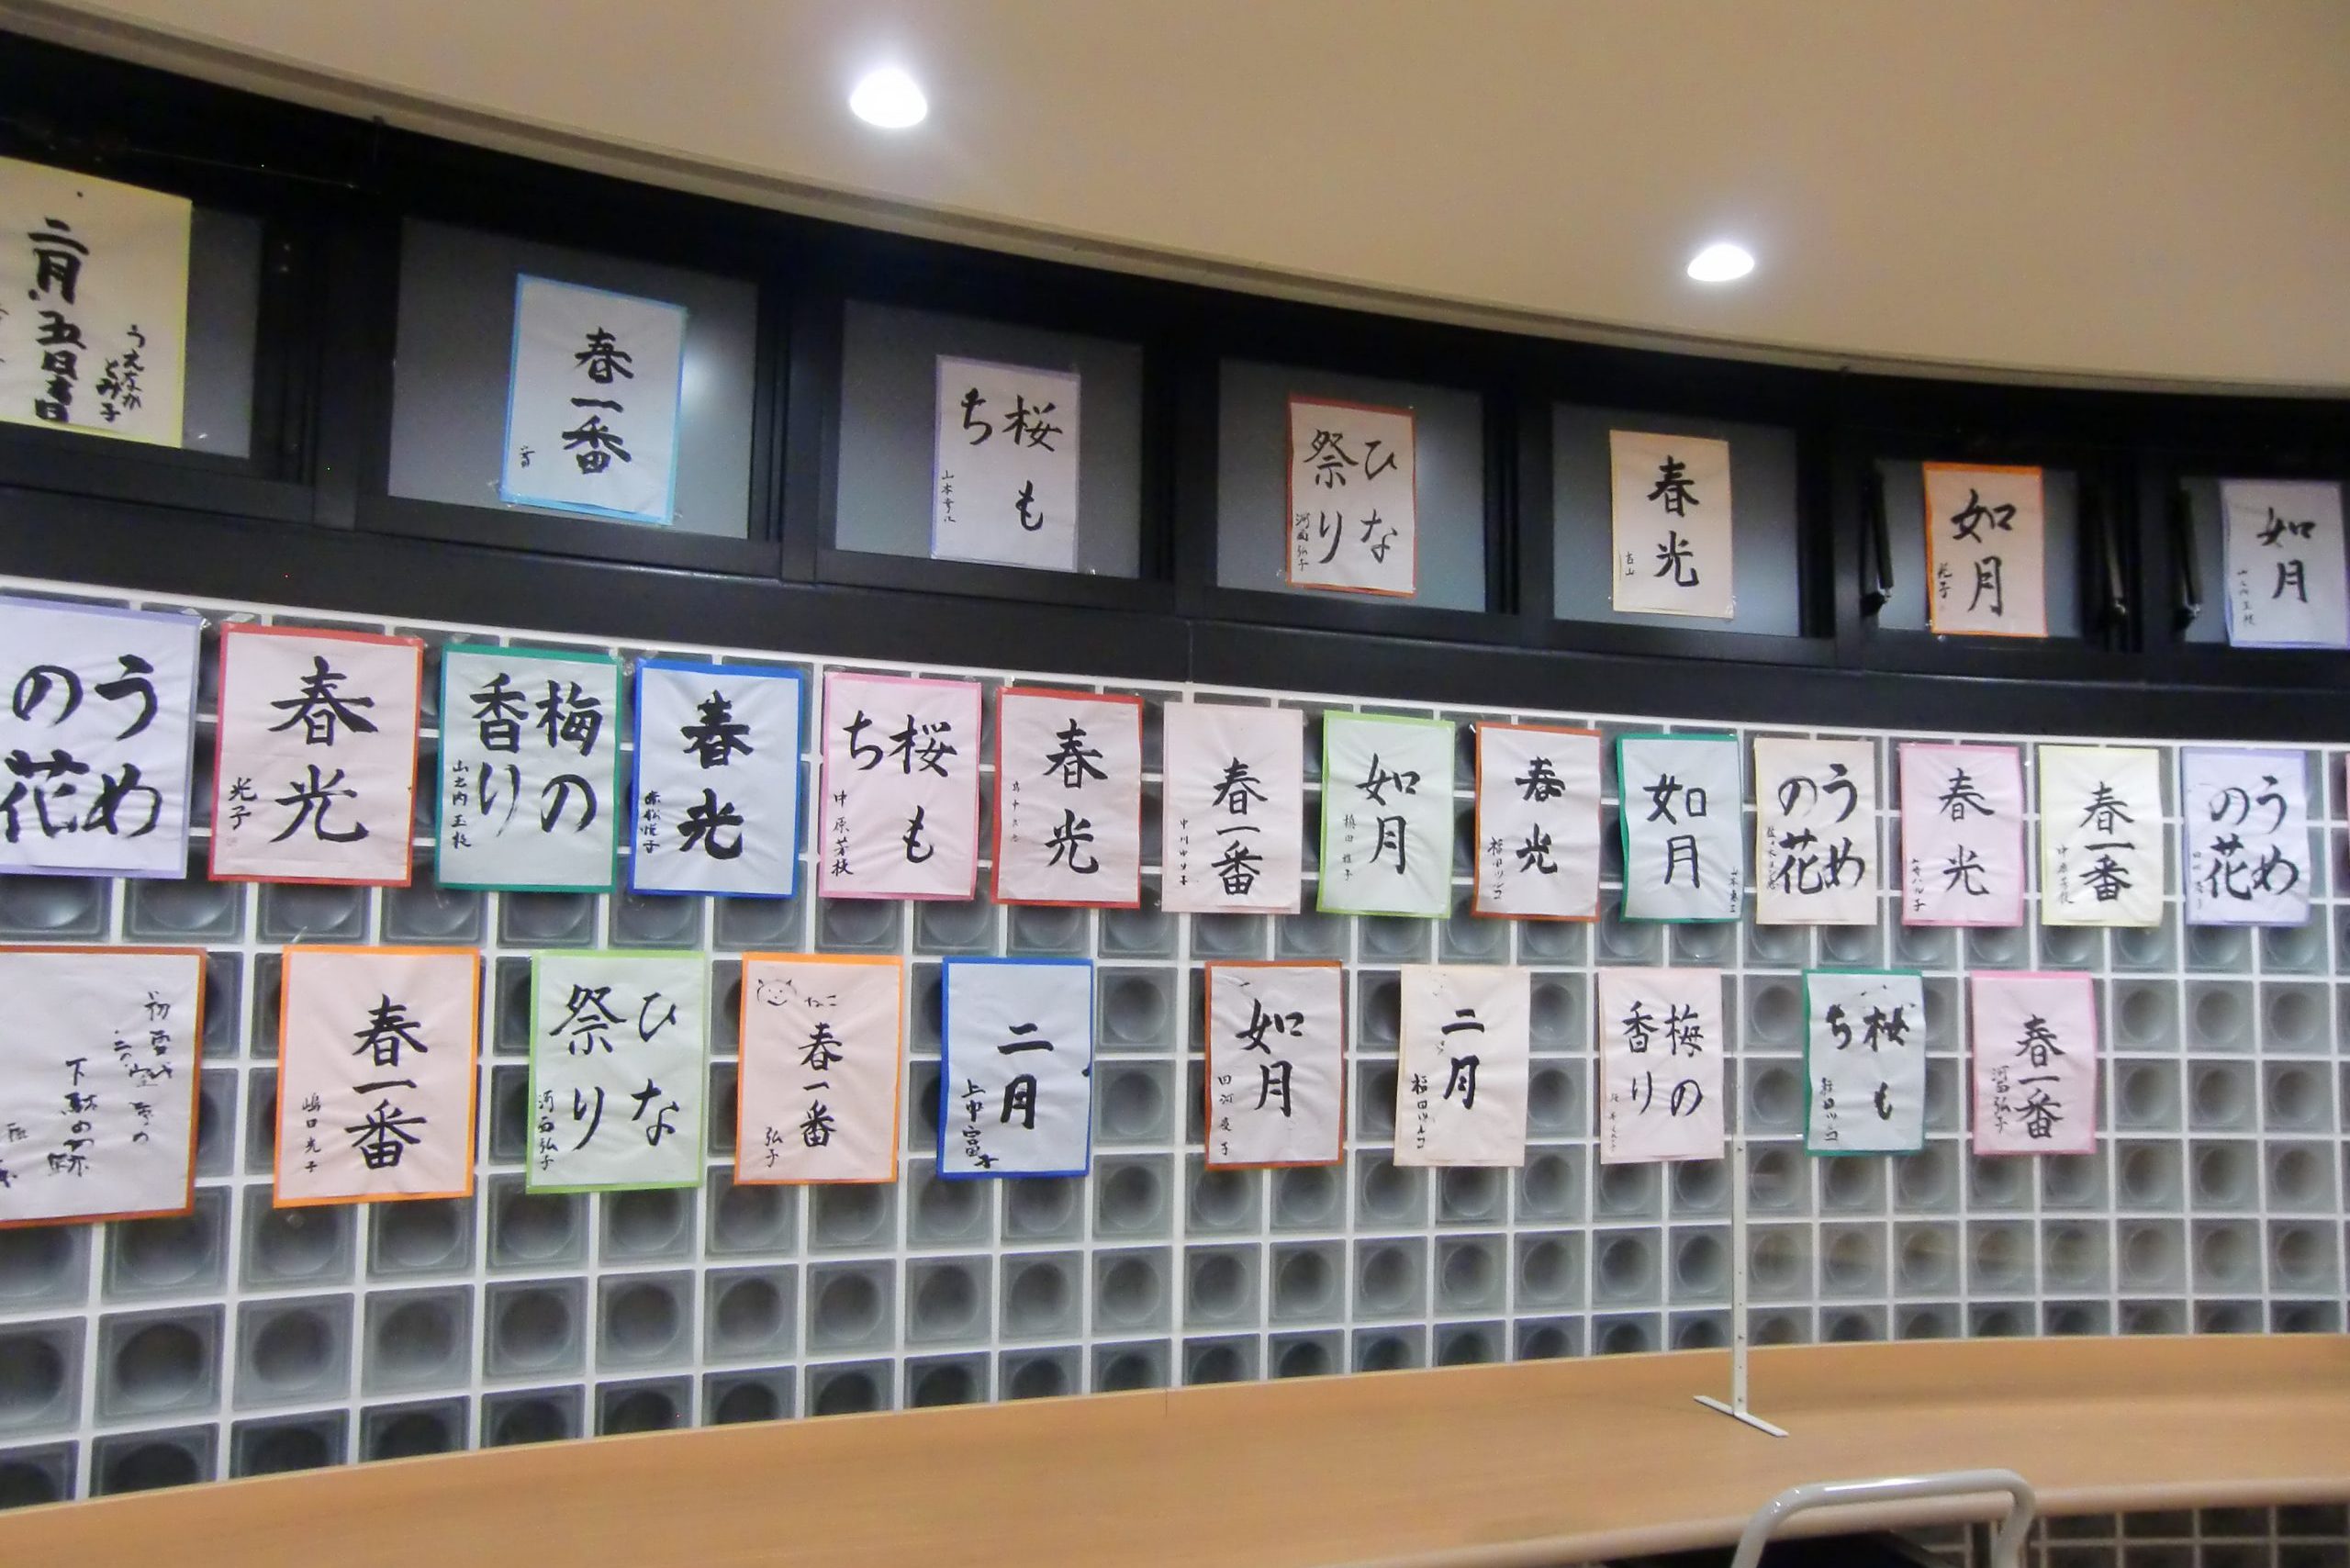 二月
五日
うえなか
とみ子
春一番
桜も
ち
ひな
祭り
河西弘子
春光
古山
如月
光子
如月
うめ
の花
春光
光子
梅の
香り
山之内玉枝
春光
桜も
ち
中原芳枝
春光
春一番
如月
春光
稲田ツルコ
如月
うめ
の花
春光
春一番
中原芳枝
うめ
の花
初雪や
二の字二の字の
下駄の跡
春一番
嶋口光子
ひな
祭り
河西弘子
ねこ
春一番
弘子
二月
上中富子
如月
田河愛子
二月
稲田ツルコ
梅の
香り
桜も
ち
稲田ツルコ
春一番
河西弘子